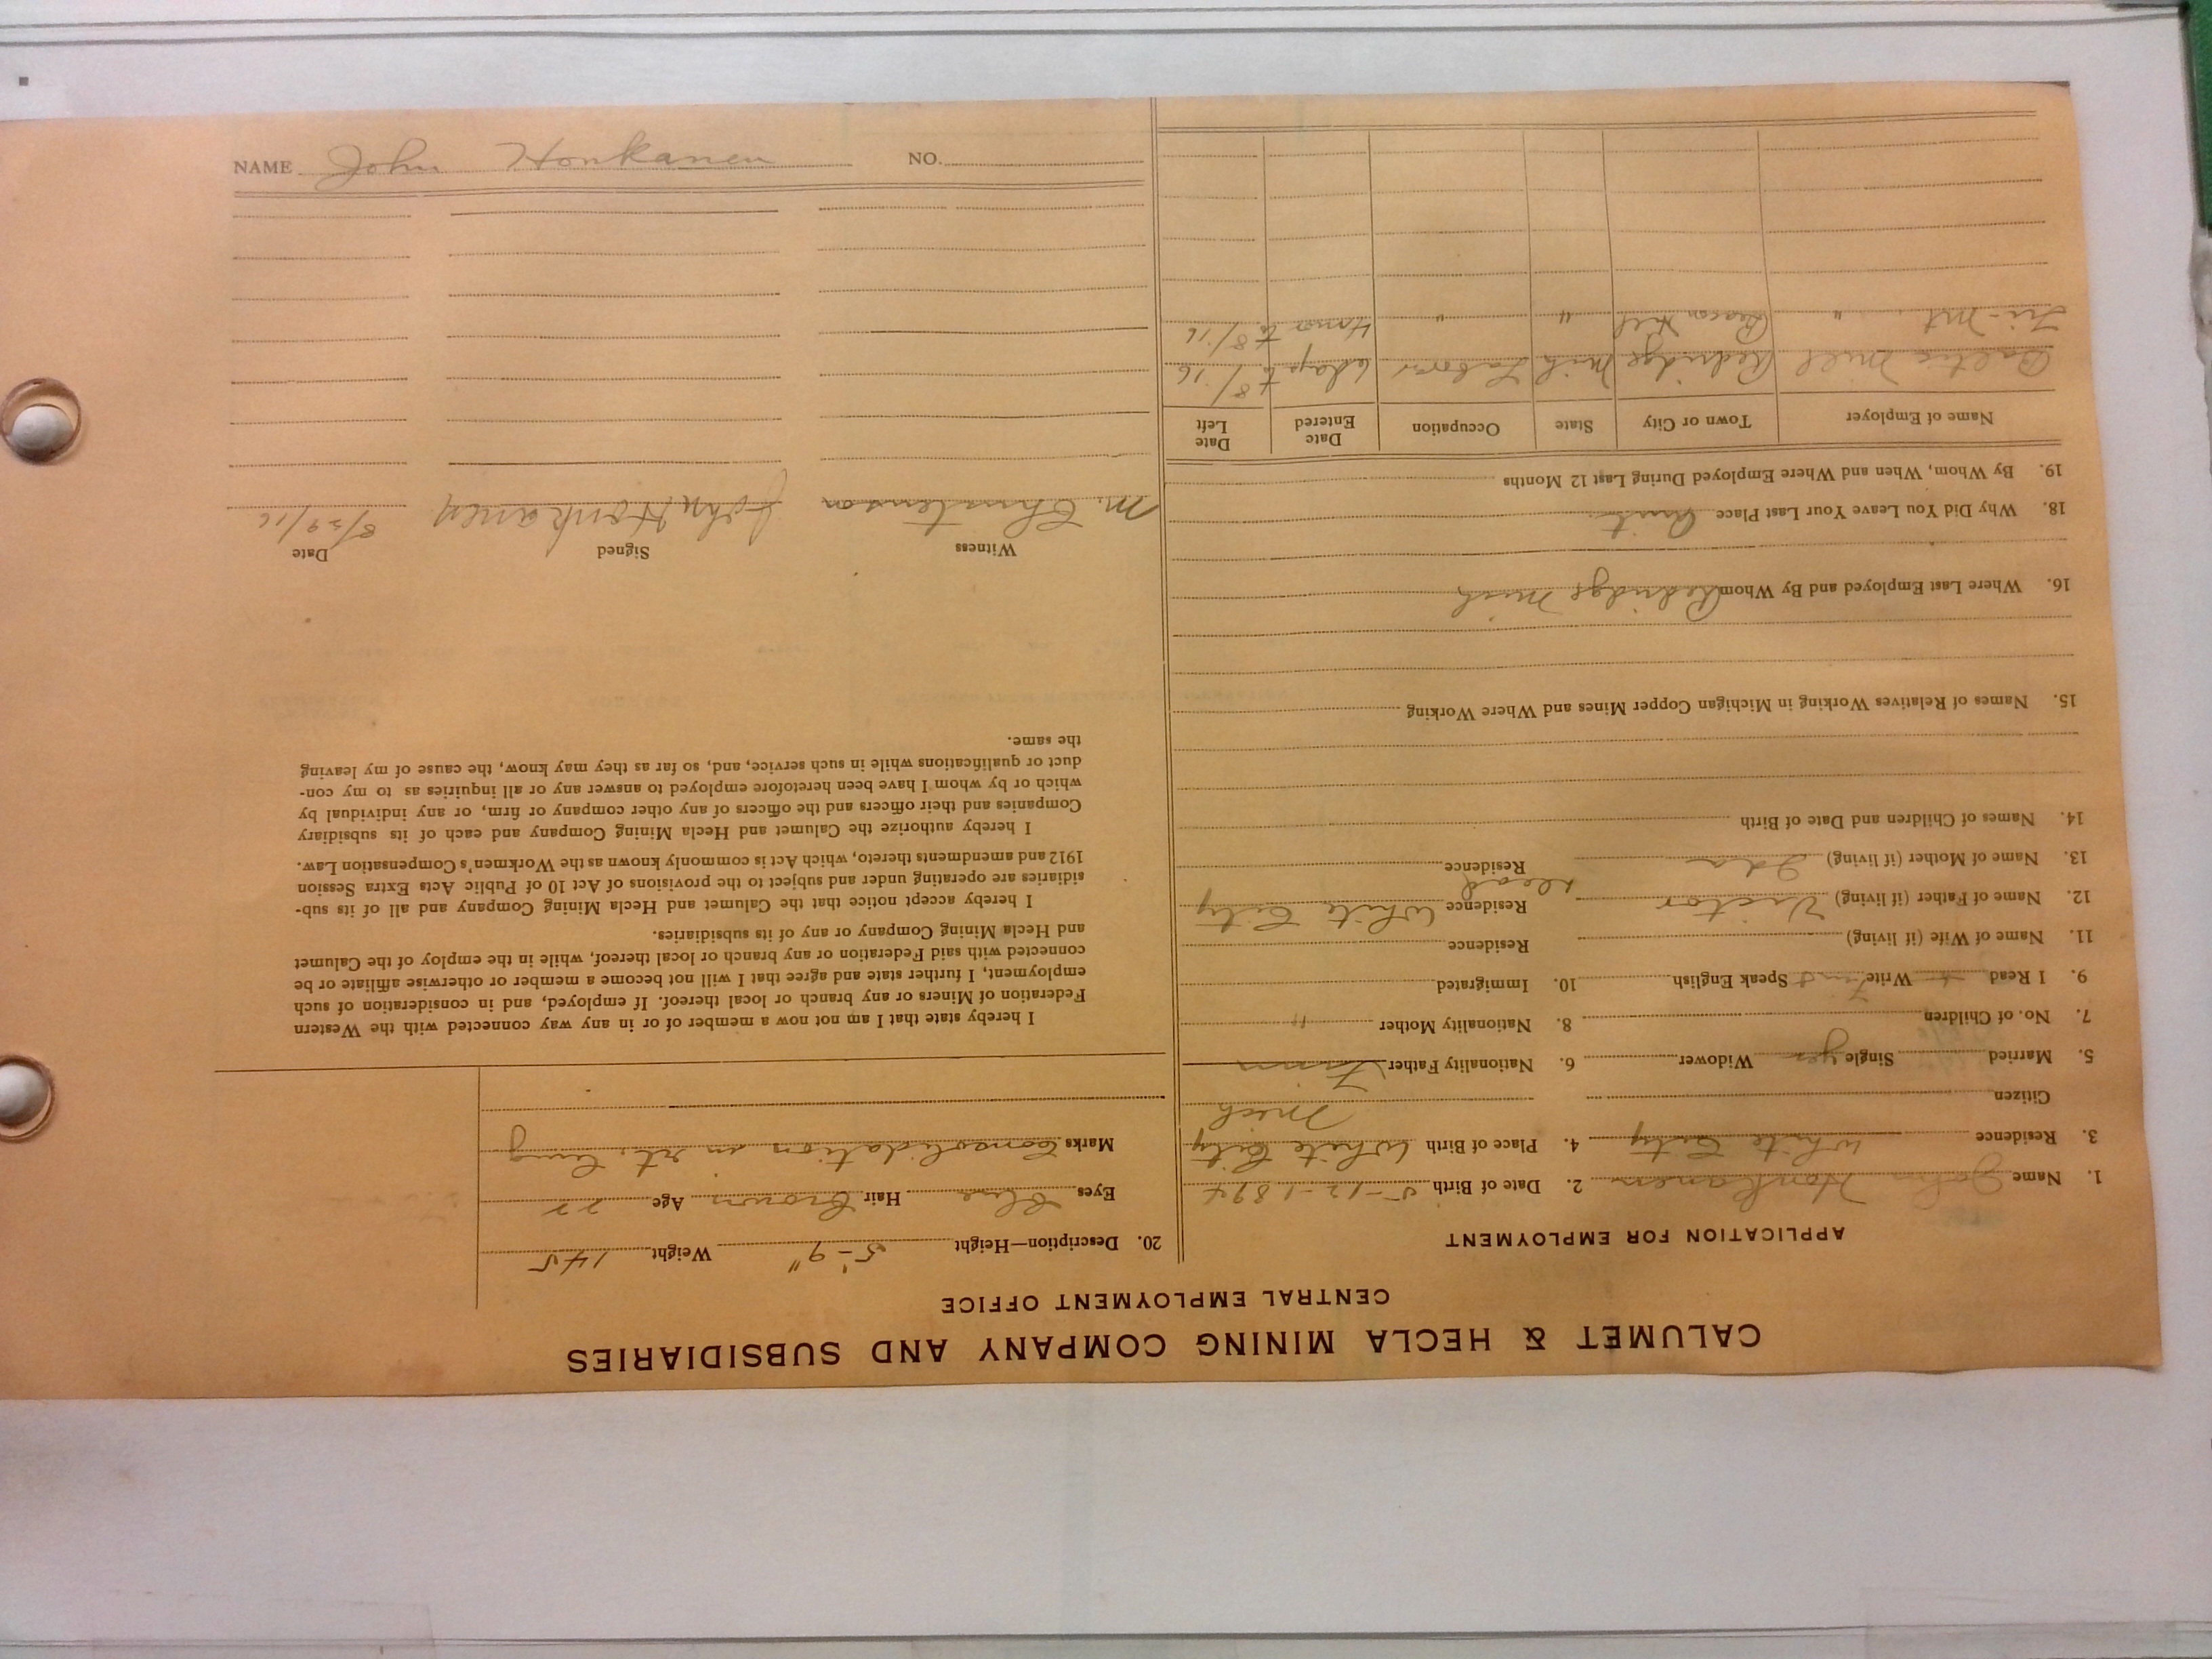 CALUMET & HECLA MINING COMPANY AND SUBSIDIARIES
CENTRAL EMPLOYMENT OFFICE
APPLICATION FOR EMPLOYMENT
1. Name John Honkanen 2. Date of Birth 5-12-1894
3. Residence White City 4. Place of Birth White City
Mich
Citizen
5. Married Single yes Widower 6. Nationality Father Finn
7. No. of Children 8. Nationality Mother "
9. I Read Write Speak English 10. Immigrated
11. Name of Wife (if living) Residence
12. Name of Father (if living) Victor Residence White City
13. Name of Mother (if living) Ida dead Residence
14. Names of Children and Date of Birth
15. Names of Relatives Working in Michigan Copper Mines and Where Working
16. Where Last Employed and By Whom Redridge Mich
18. Why Did You Leave Your Last Place Quit
19. By Whom, When and Where Employed During Last 12 Months
Name of Employer Town or City State Occupation Date Entered Date Left
Baltic Mill Redridge Mich Labor 6 days to 8/16
Tri-Mt. " Beacon Hill " " 4 mos to 8/16
20. Description—Height 5'-9" Weight 145
Eyes Blue Hair Brown Age 22
Marks Consolidation in rt. lung
I hereby state that I am not now a member of or in any way connected with the Western
Federation of Miners or any branch or local thereof. If employed, and in consideration of such
employment, I further state and agree that I will not become a member or otherwise affiliate or be
connected with said Federation or any branch or local thereof, while in the employ of the Calumet
and Hecla Mining Company or any of its subsidiaries.
I hereby accept notice that the Calumet and Hecla Mining Company and all of its sub-
sidiaries are operating under and subject to the provisions of Act 10 of Public Acts Extra Session
1912 and amendments thereto, which Act is commonly known as the Workmen's Compensation Law.
I hereby authorize the Calumet and Hecla Mining Company and each of its subsidiary
Companies and their officers and the officers of any other company or firm, or any individual by
which or by whom I have been heretofore employed to answer any or all inquiries as to my con-
duct or qualifications while in such service, and, so far as they may know, the cause of my leaving
the same.
Witness Signed Date
M. Christenson John Honkanen 8/29/16
NAME John Honkanen NO.